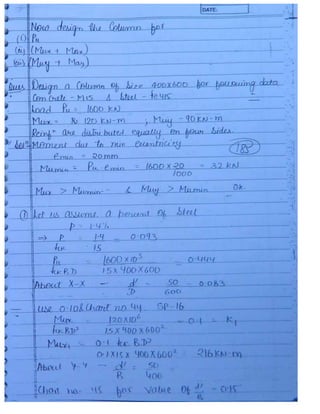 DATE.
Now design the Column for
(i) Pu
(ii) (Mux + Max)
(iii) (Muy + May)
Ques Design a Column of Size 400x600 for following data
Concrete - M15 & Steel - fe415
Load Pu = 1600 KN
Mux = 120 KN-m , Muy - 90KN-m
Reinft are distributed equally on four sides.
Solⁿ Moment due to min eccentricity
emin = 20mm
185
Mumin = Pu. emin = 1600 x 20 / 1000 = 32 KN
Mux > Mumin & Muy > Mumin Ok.
① Let us assume a percent of Steel
P = 1.4%
⇒ P / fck = 1.4 / 15 = 0.093
Pu / fck B.D = 1600x10³ / 15x400x600 = 0.444
About X-X - d' / D = 50 / 600 = 0.083
use 0.10 & Chart no 44. SP-16
Mux / fck.BD² = 120x10⁶ / 15x400x600² - 0.1 = K1
Mux1 = 0.1 fck B.D²
0.1x15x400x600² = 216KN-m
About Y-Y - d' / B = 50 / 400
Chart no. 45 for value of d' / B - 0.15